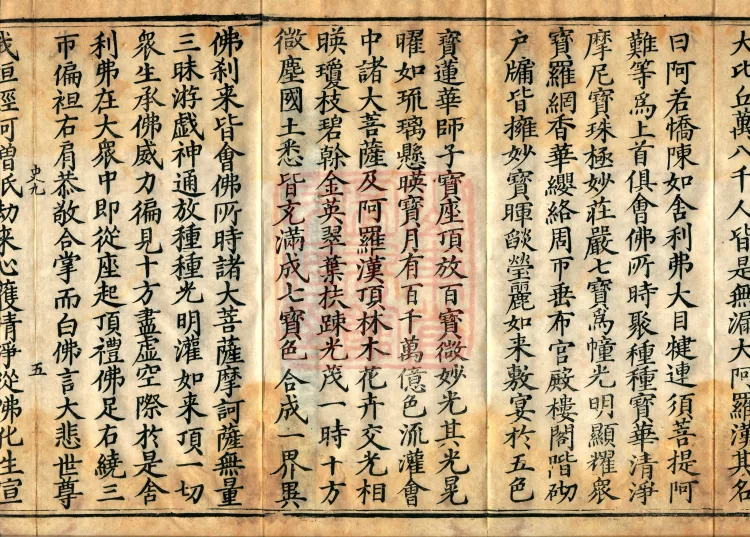 大比丘萬八千人皆是無漏大阿羅漢其名
曰阿若憍陳如舍利弗大目犍連須菩提阿
難等爲上首俱會佛所時聚種種寶華清淨
摩尼寶珠極妙莊嚴七寶爲幢光明顯耀衆
寶羅網香華纓絡周帀垂布宮殿樓閣階砌
户牖皆擁妙寶暉燄瑩麗如来敷宴於五色
寶蓮華師子寶座頂放百寶微妙光其光晃
曜如琉璃懸暎寶月有百千萬億色流灌會
中諸大菩薩及阿羅漢頂林木花卉交光相
暎瓊枝碧榦金英翠葉扶踈光茂一時十方
微塵國土悉皆充滿成七寶色合成一界異
佛刹来皆會佛所時諸大菩薩摩訶薩無量
三昧游戲神通放種種光明灌如来頂一切
衆生承佛威力徧見十方盡虛空際於是舍
利弗在大衆中即從座起頂禮佛足右繞三
帀偏袒右肩恭敬合掌而白佛言大悲世尊
史九 五
我經阿僧祇劫来心獲清淨從佛化生宣